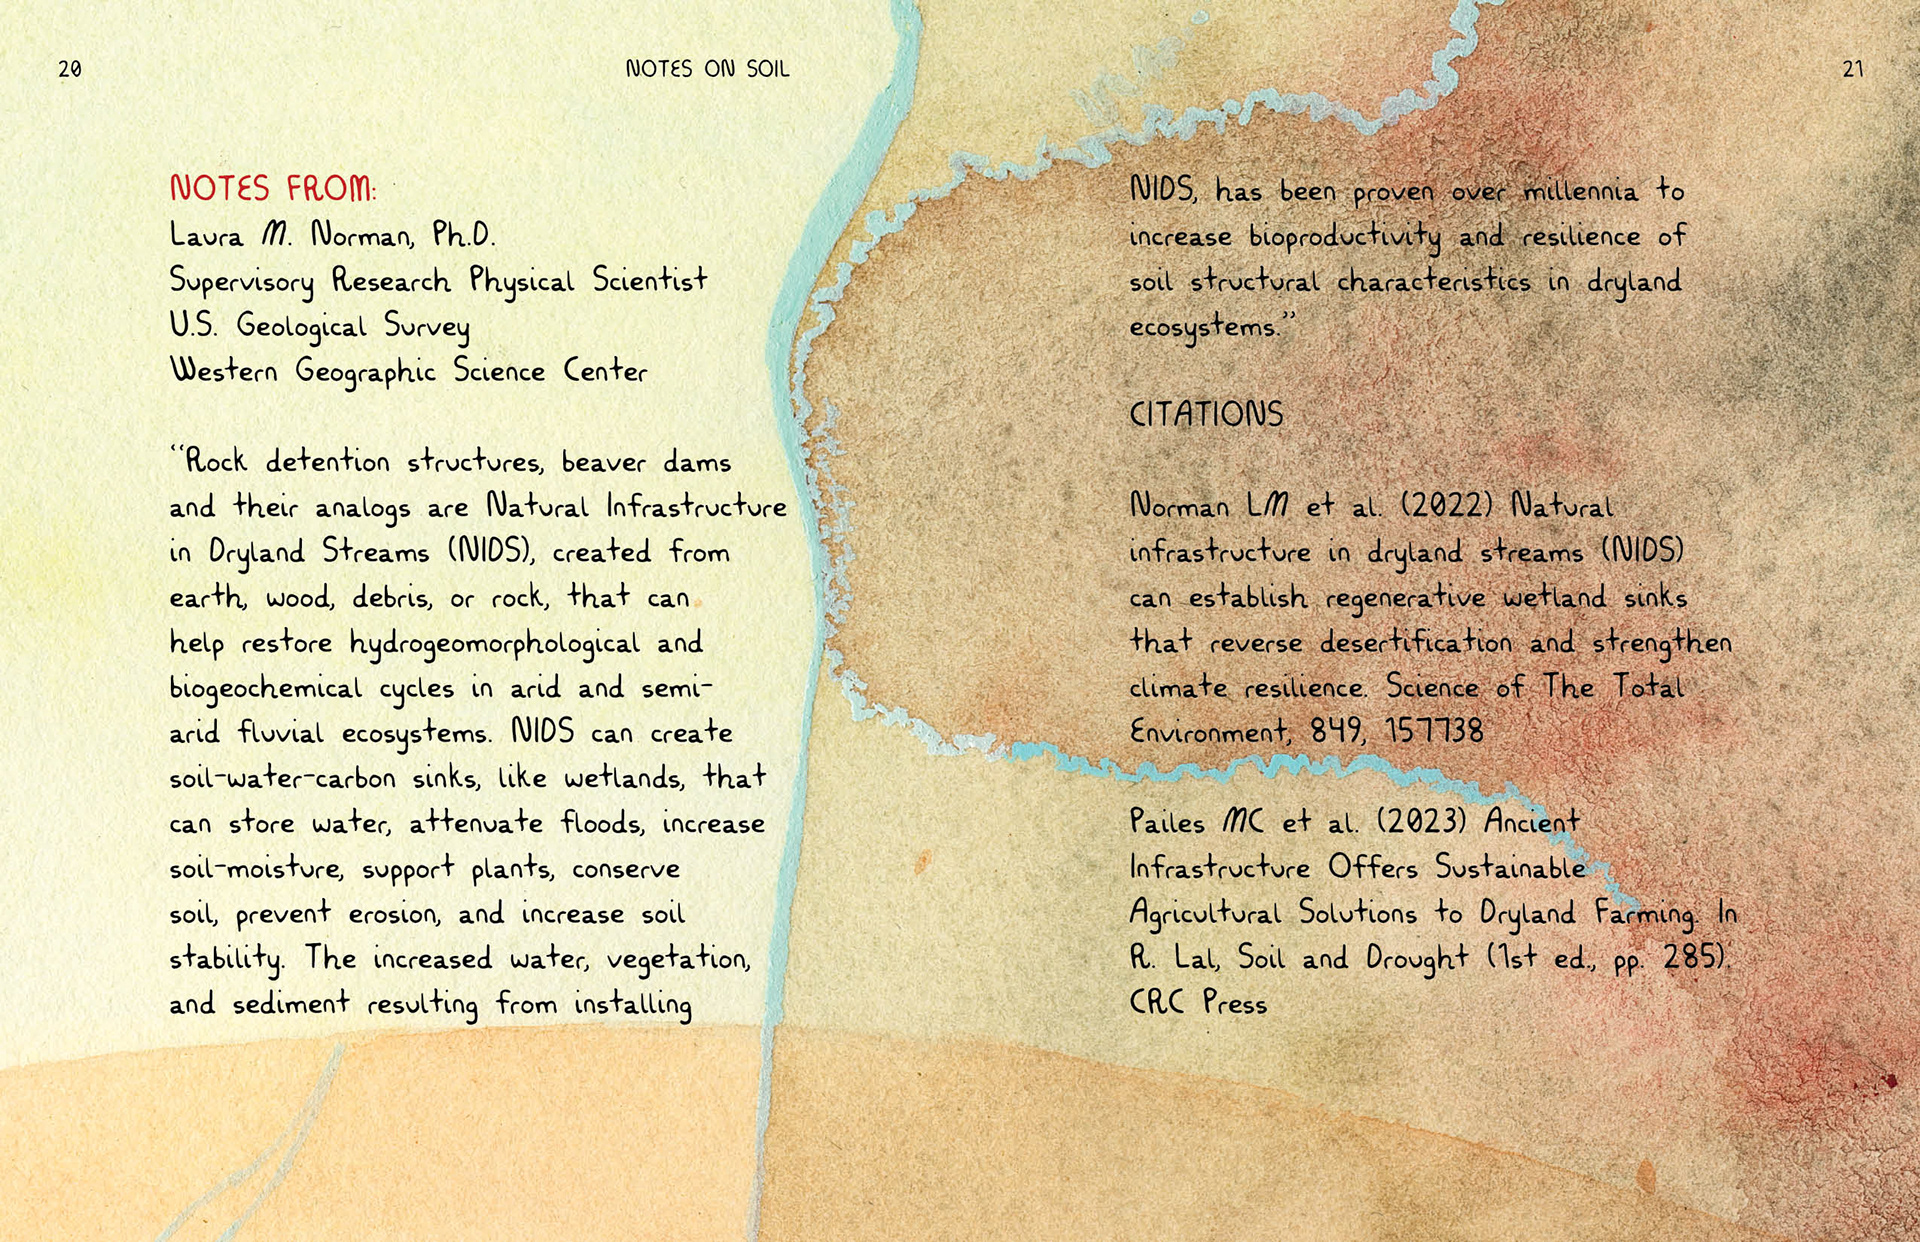 20
NOTES ON SOIL
NOTES FROM:
Laura M. Norman, Ph.D.
Supervisory Research Physical Scientist
U.S. Geological Survey
Western Geographic Science Center
“Rock detention structures, beaver dams
and their analogs are Natural Infrastructure
in Dryland Streams (NIDS), created from
earth, wood, debris, or rock, that can
help restore hydrogeomorphological and
biogeochemical cycles in arid and semi-
arid fluvial ecosystems. NIDS can create
soil-water-carbon sinks, like wetlands, that
can store water, attenuate floods, increase
soil-moisture, support plants, conserve
soil, prevent erosion, and increase soil
stability. The increased water, vegetation,
and sediment resulting from installing
21
NIDS, has been proven over millennia to
increase bioproductivity and resilience of
soil structural characteristics in dryland
ecosystems.”
CITATIONS
Norman LM et al. (2022) Natural
infrastructure in dryland streams (NIDS)
can establish regenerative wetland sinks
that reverse desertification and strengthen
climate resilience. Science of The Total
Environment, 849, 157738
Pailes MC et al. (2023) Ancient
Infrastructure Offers Sustainable
Agricultural Solutions to Dryland Farming. In
R. Lal, Soil and Drought (1st ed., pp. 285).
CRC Press